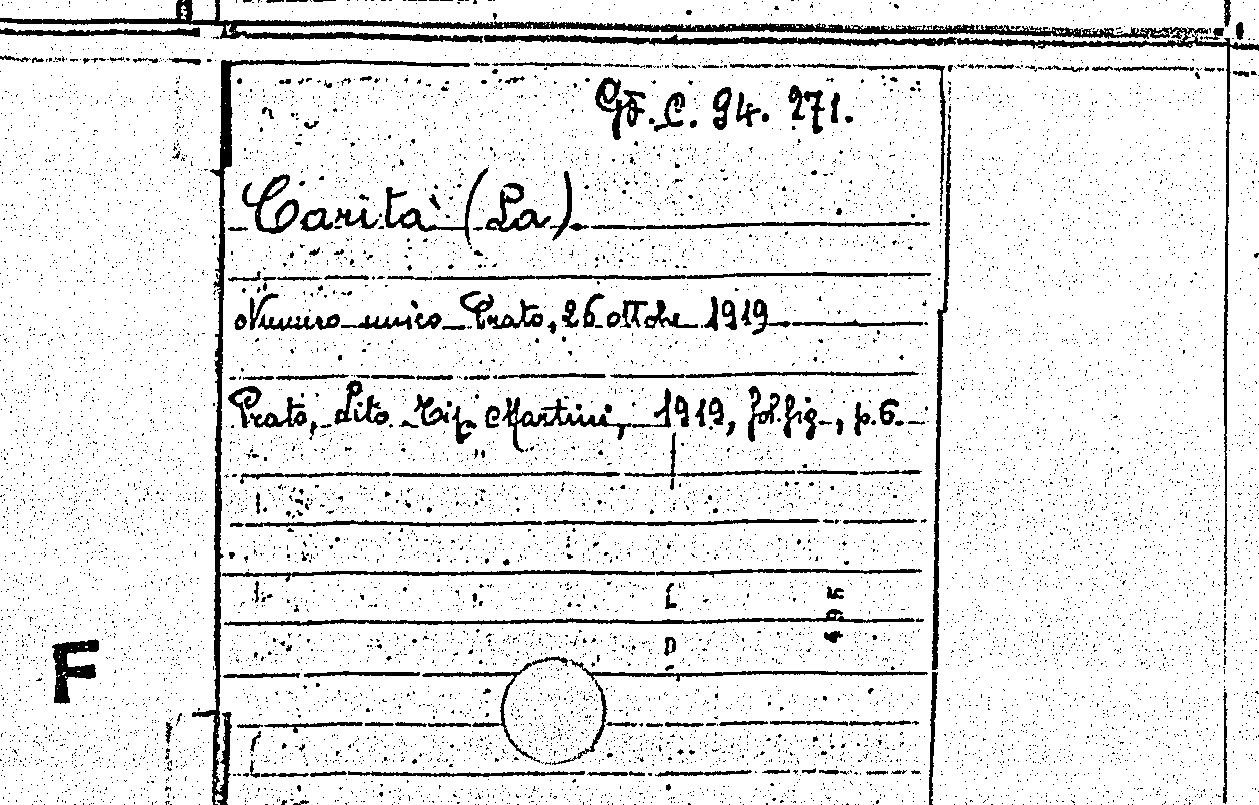 GF. C. 94. 271.
Carità (La).
Numero unico Prato, 26 ottobre 1919
Prato, Lito Tip. Martini, 1919, fol. fig., p. 6.
495
F